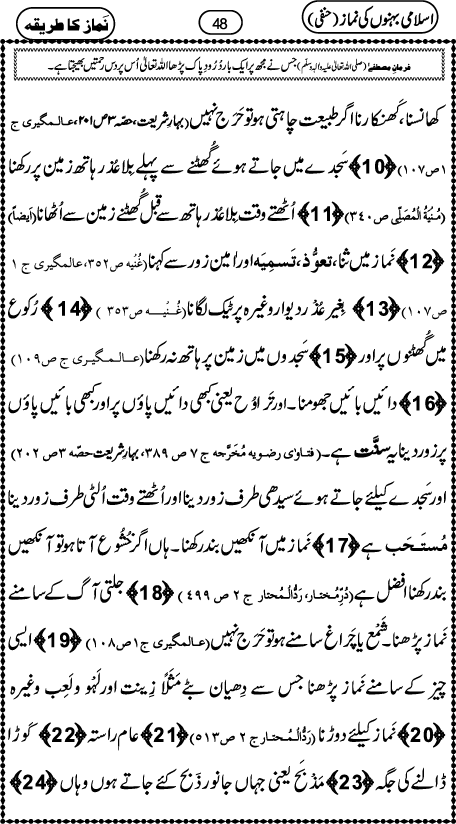 اسلامی بہنوں کی نماز (حنفی)
48
نَماز کا طریقہ
فرمانِ مصطَفٰے (صلی اللہ تعالیٰ علیہ واٰلہٖ وسلّم) جس نے مجھ پر ایک بار دُرُودِ پاک پڑھا اللہ تعالیٰ اُس پر دس رحمتیں بھیجتا ہے۔
کھانسنا، کَھنکارنا اگر طبیعت چاہتی ہو تو حَرَج نہیں (بہارِ شریعت، حصّہ ۳ ص ۲۰۱، عالمگیری ج
۱ ص ۱۰۷) ﴿10﴾ سَجدے میں جاتے ہوئے گُھٹنے سے پہلے بلا عُذر ہاتھ زمین پر رکھنا
(مُنْیَۃُ الْمُصَلّٰی ص ۳۴۰) ﴿11﴾ اُٹھتے وقت بلا عُذر ہاتھ سے قبل گُھٹنے زمین سے اُٹھانا (اَیضاً)
﴿12﴾ نَماز میں ثنا، تعوُّذ، تَسمِیَہ اور اٰمین زور سے کہنا (غُنْیہ ص ۳۵۲، عالمگیری ج ۱
ص ۱۰۷) ﴿13﴾ بِغیر عُذر دیوار وغیرہ پر ٹیک لگانا (غُـنْیـــہ ص ۳۵۳) ﴿14﴾ رُکوع
میں گُھٹنوں پر اور ﴿15﴾ سَجدوں میں زمین پر ہاتھ نہ رکھنا (عـالـمـگیری ج ص ۱۰۹)
﴿16﴾ دائیں بائیں جھومنا۔ اور تَراوُح یعنی کبھی دائیں پاؤں پر اور کبھی بائیں پاؤں
پر زور دینا یہ سنَّت ہے۔ (فتاوٰی رضویہ مُخَرَّجہ ج ۷ ص ۳۸۹، بہارِ شریعت حصّہ ۳ ص ۲۰۲)
اور سَجدے کیلئے جاتے ہوئے سیدھی طرف زور دینا اور اُٹھتے وقت اُلٹی طرف زور دینا
مُستَـحَب ہے ﴿17﴾ نَماز میں آنکھیں بند رکھنا۔ ہاں اگر خُشُوع آتا ہو تو آنکھیں
بند رکھنا افضل ہے (دُرِّمُختار، رَدُّالْـمُحتار ج ۲ ص ۴۹۹) ﴿18﴾ جلتی آگ کے سامنے
نَماز پڑھنا۔ شَمْع یا چَراغ سامنے ہو تو حَرَج نہیں (عـالمگیری ج ۱ ص ۱۰۸) ﴿19﴾ ایسی
چیز کے سامنے نَماز پڑھنا جس سے دِھیان بٹے مَثَلاً زِینت اور لَہْو و لَعِب وغیرہ
﴿20﴾ نَماز کیلئے دوڑنا (رَدُّالْـمُحتار ج ۲ ص ۵۱۳) ﴿21﴾ عام راستہ ﴿22﴾ کُوڑا
ڈالنے کی جگہ ﴿23﴾ مَذْبَح یعنی جہاں جانور ذَبح کئے جاتے ہوں وہاں ﴿24﴾